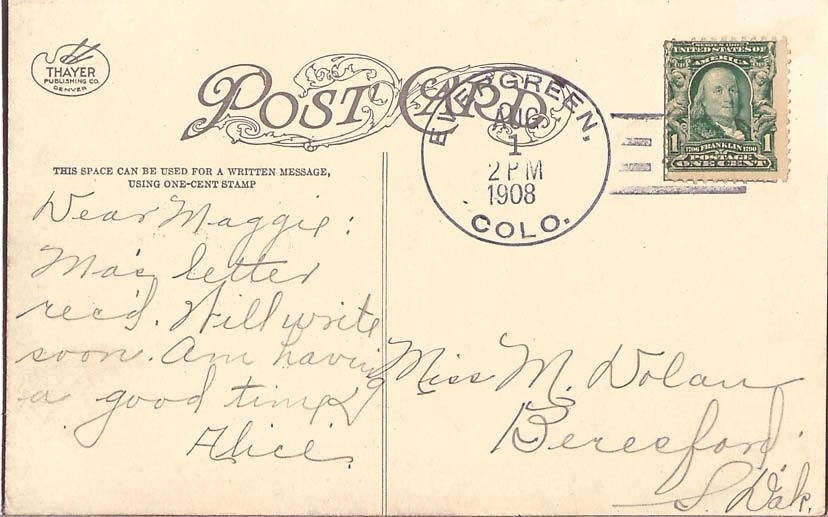 THAYER
PUBLISHING CO.
DENVER
POST CARD
EVERGREEN,
AUG
1
2 PM
1908
COLO.
SERIES 1902
UNITED STATES OF
AMERICA
1 1
1706 FRANKLIN 1790
POSTAGE
ONE CENT
THIS SPACE CAN BE USED FOR A WRITTEN MESSAGE,
USING ONE-CENT STAMP
Dear Maggie:
Ma's letter
rec'd. Will write
soon. Am having
a good time
Alice.
Miss M. Dolan
Beresford.
S. Dak.